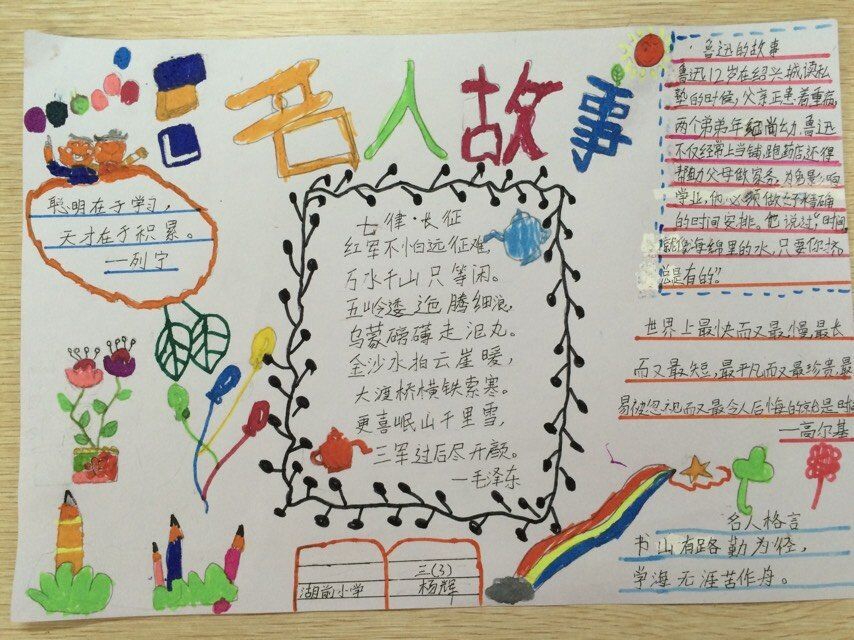 名人故事
聪明在于学习,
天才在于积累。
—列宁
七律·长征
红军不怕远征难,
万水千山只等闲。
五岭逶迤腾细浪,
乌蒙磅礴走泥丸。
金沙水拍云崖暖,
大渡桥横铁索寒。
更喜岷山千里雪,
三军过后尽开颜。
—毛泽东
·鲁迅的故事
鲁迅12岁在绍兴城读私
塾的时候,父亲正患着重病,
两个弟弟年纪尚幼,鲁迅
不仅经常上当铺,跑药店,还得
帮助父母做家务,为免影响
学业,他必须做好精确
的时间安排。他说过:"时间
就像海绵里的水,只要你挤,
总是有的"
世界上最快而又最慢,最长
而又最短,最平凡而又最珍贵,最
易被忽视而又最令人后悔的就是时
—高尔基
名人格言
书山有路勤为径,
学海无涯苦作舟。
湖前小学
三(3)
杨辉